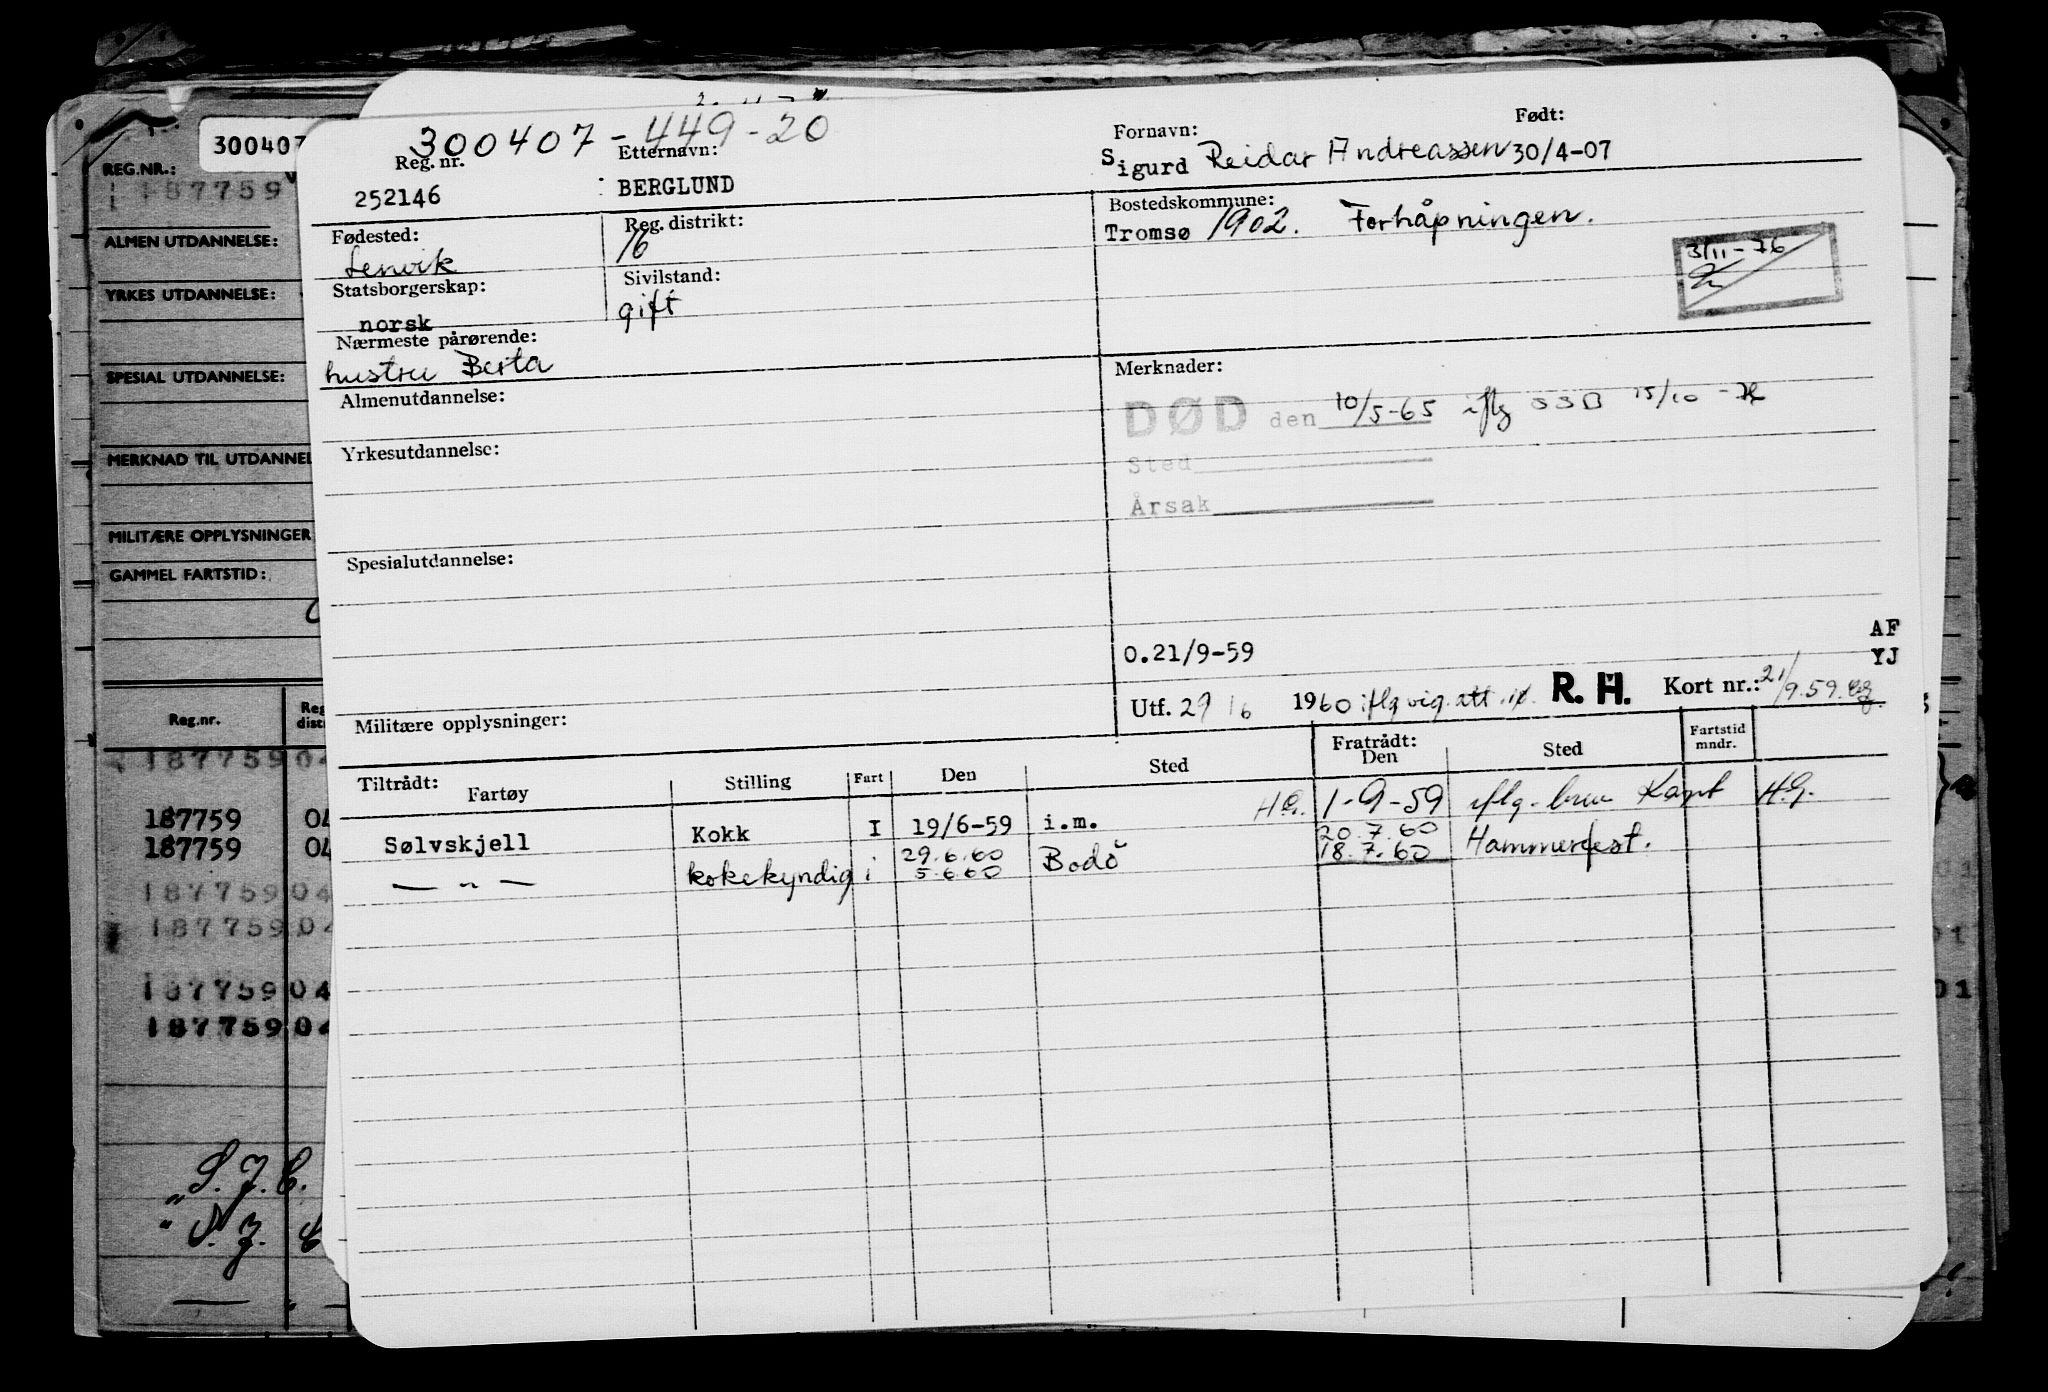 300407-449-20
Reg. nr. Etternavn: Fornavn: Født:
252146 BERGLUND Sigurd Reidar Andreassen 30/4-07
Fødested: Reg. distrikt: Bostedskommune:
Lenvik 16 Tromsø 1902. Forhåpningen.
3/11-76
Statsborgerskap: Sivilstand:
norsk gift
Nærmeste pårørende: Merknader:
hustru Berta
Almenutdannelse: DØD den 10/5-65 iflg SSB 15/10-
Yrkesutdannelse: Sted
Årsak
Spesialutdannelse:
O.21/9-59 AF
YJ
Militære opplysninger: Utf. 29/6 1960 iflg R. H. Kort nr.: 21/9.59.
Tiltrådt: Fartøy Stilling Fart Den Sted Fratrådt: Den Sted Fartstid mndr.
Sølvskjell Kokk I 19/6-59 i.m. H.G. 1-9-59 iflg. brev Kapt H.G.
— " — kokekyndig i 29.6.60 Bodö 20.7.60 Hammerfest.
5.6.60 18.7.60
REG.NR.: 300407
187759
ALMEN UTDANNELSE:
YRKES UTDANNELSE:
SPESIAL UTDANNELSE:
MERKNAD TIL UTDANNEL
MILITÆRE OPPLYSNINGER
GAMMEL FARTSTID:
Reg.nr. Reg distr
187759 04
187759 04
187759 04
187759 04
187759 04
187759 04
187759 04
01
01
01